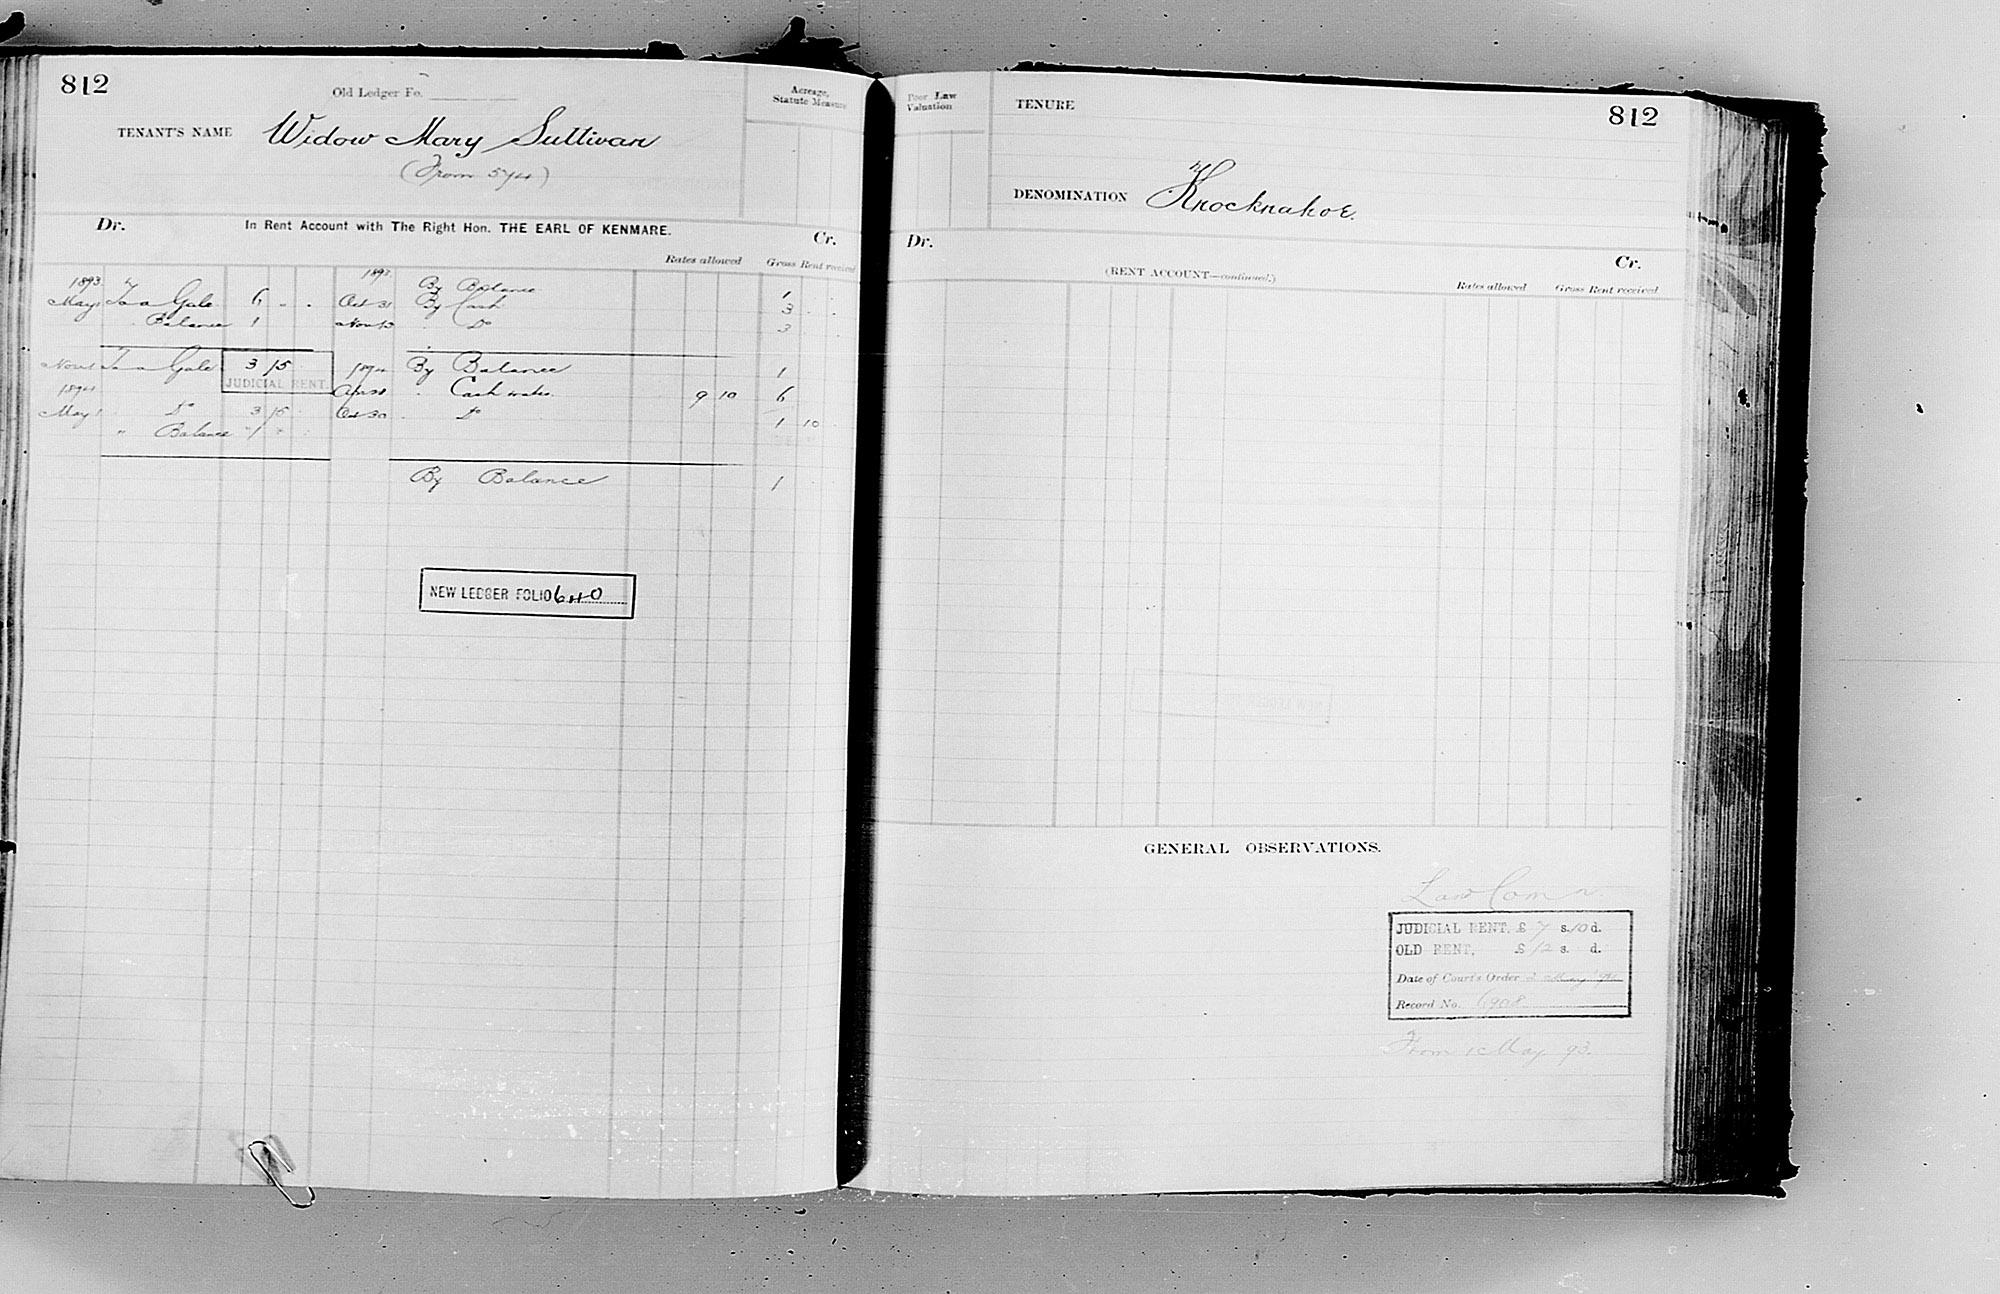 812
Old Ledger Fo.
TENANT'S NAME Widow Mary Sullivan
(From 574)
Acreage, Statute Measure
Dr. In Rent Account with The Right Hon. THE EARL OF KENMARE. Cr.
Rates allowed Gross Rent received
1893 1893 By Balance 1
May 1 To a Gale 6 - - Oct 31 By Cash 3
Balance 1 Nov 13 Do 3
Nov 1 To a Gale 3 15 1894 By Balance 1
JUDICIAL RENT.
1894 Apr Cash 9 10 6
May 1 Do 3 15 Oct 30 Do 1 10
" Balance 1
By Balance 1
NEW LEDGER FOLIO 640
Poor Law Valuation
TENURE
812
DENOMINATION Knocknahoe.
Dr. Cr.
(RENT ACCOUNT—continued.)
Rates allowed Gross Rent received
GENERAL OBSERVATIONS.
Land Comn.
JUDICIAL RENT, £ 7 s. 10 d.
OLD RENT, £ 12 s. d.
Date of Court's Order 2 May 94
Record No. 6908
From 1 May 93.